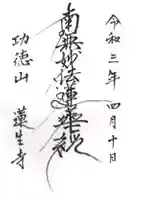 令和三年 四月十日
南無妙法蓮華経
功徳山 蓮生寺